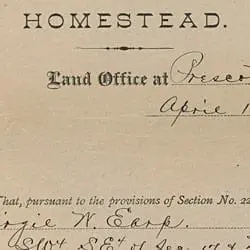 HOMESTEAD.
Land Office at Presco
April 1
That, pursuant to the provisions of Section No. 22
rgie W. Earp.
SW4 S.E4 of Sec.